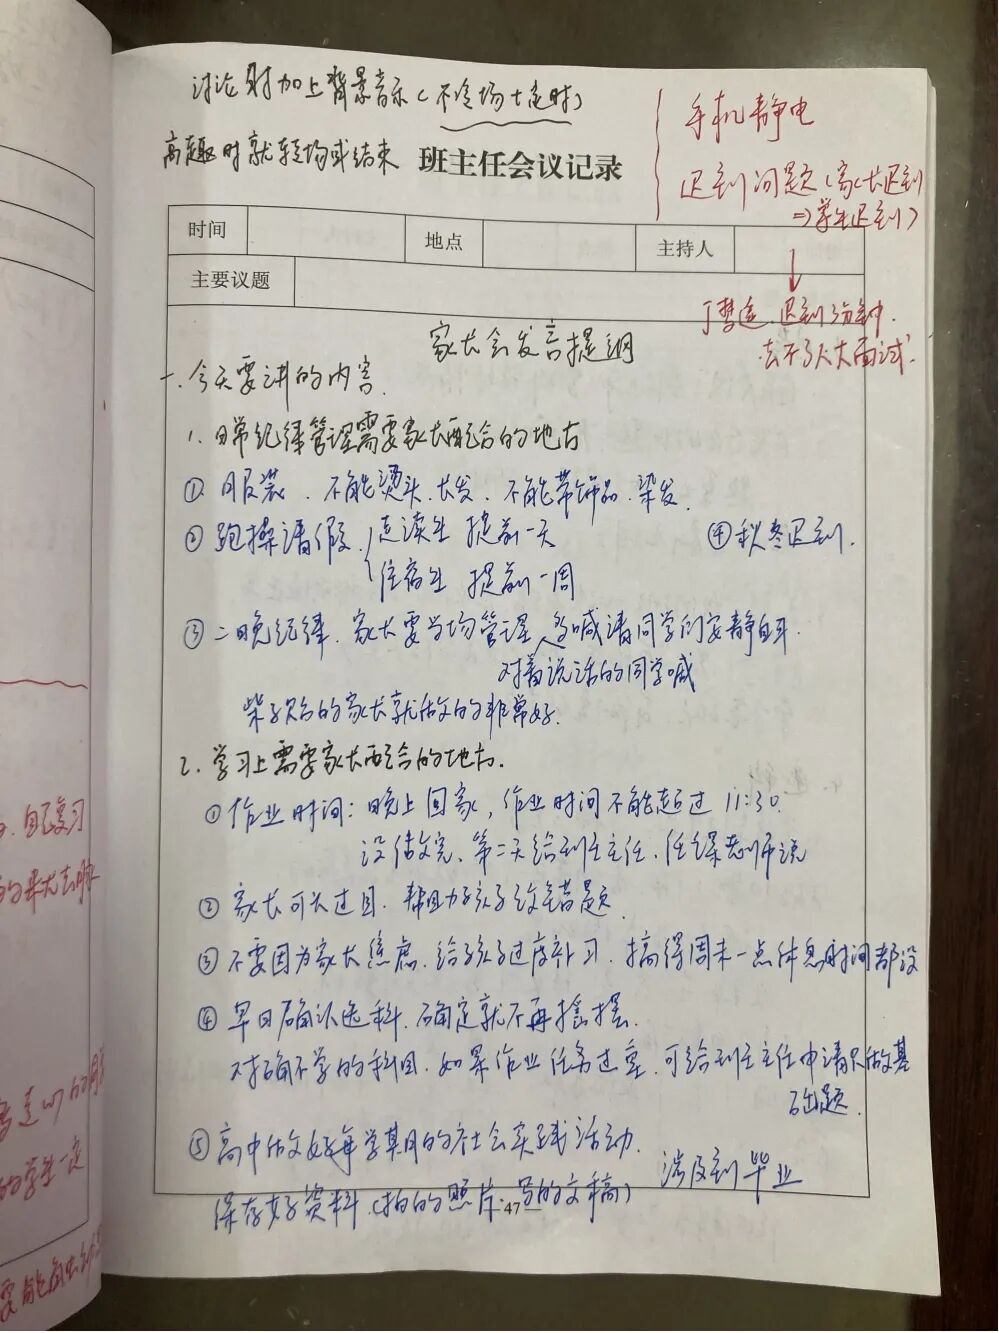 讨论时加上背景音乐(不冷场+定时)
高趣时就转场或结束
班主任会议记录
手机静电
迟到问题(家长迟到
⇒学生迟到)
↓
迟到3分钟.
去不了人大面试.
时间
地点
主持人
主要议题
家长会发言提纲
一.今天要讲的内容.
1.日常纪律管理需要家长配合的地方
① 服装、不能烫头、长发、不能带饰品、染发.
② 跑操请假 走读生 提前一天
④秋冬迟到.
住宿生 提前一周
③ 二晚纪律.家长要当场管理,勿喊请同学们安静自习.
对着说话的同学喊
的家长就做的非常好.
2.学习上需要家长配合的地方.
①作业时间:晚上回家,作业时间不能超过11:30.
没做完、第二天给班主任、任课老师开说
② 家长可以过目.帮助孩子改错题.
③ 不要因为家长焦虑.给孩子过度补习.搞得周末一点休息时间都没
④ 早日确认选科.确定就不再摇摆.
对确不学的科目.如果作业任务过重.可给班主任申请只做基
础题.
⑤高中做好每学期的社会实践活动.
涉及到毕业
保存好资料(拍的照片、写的文稿)
47
自己复习